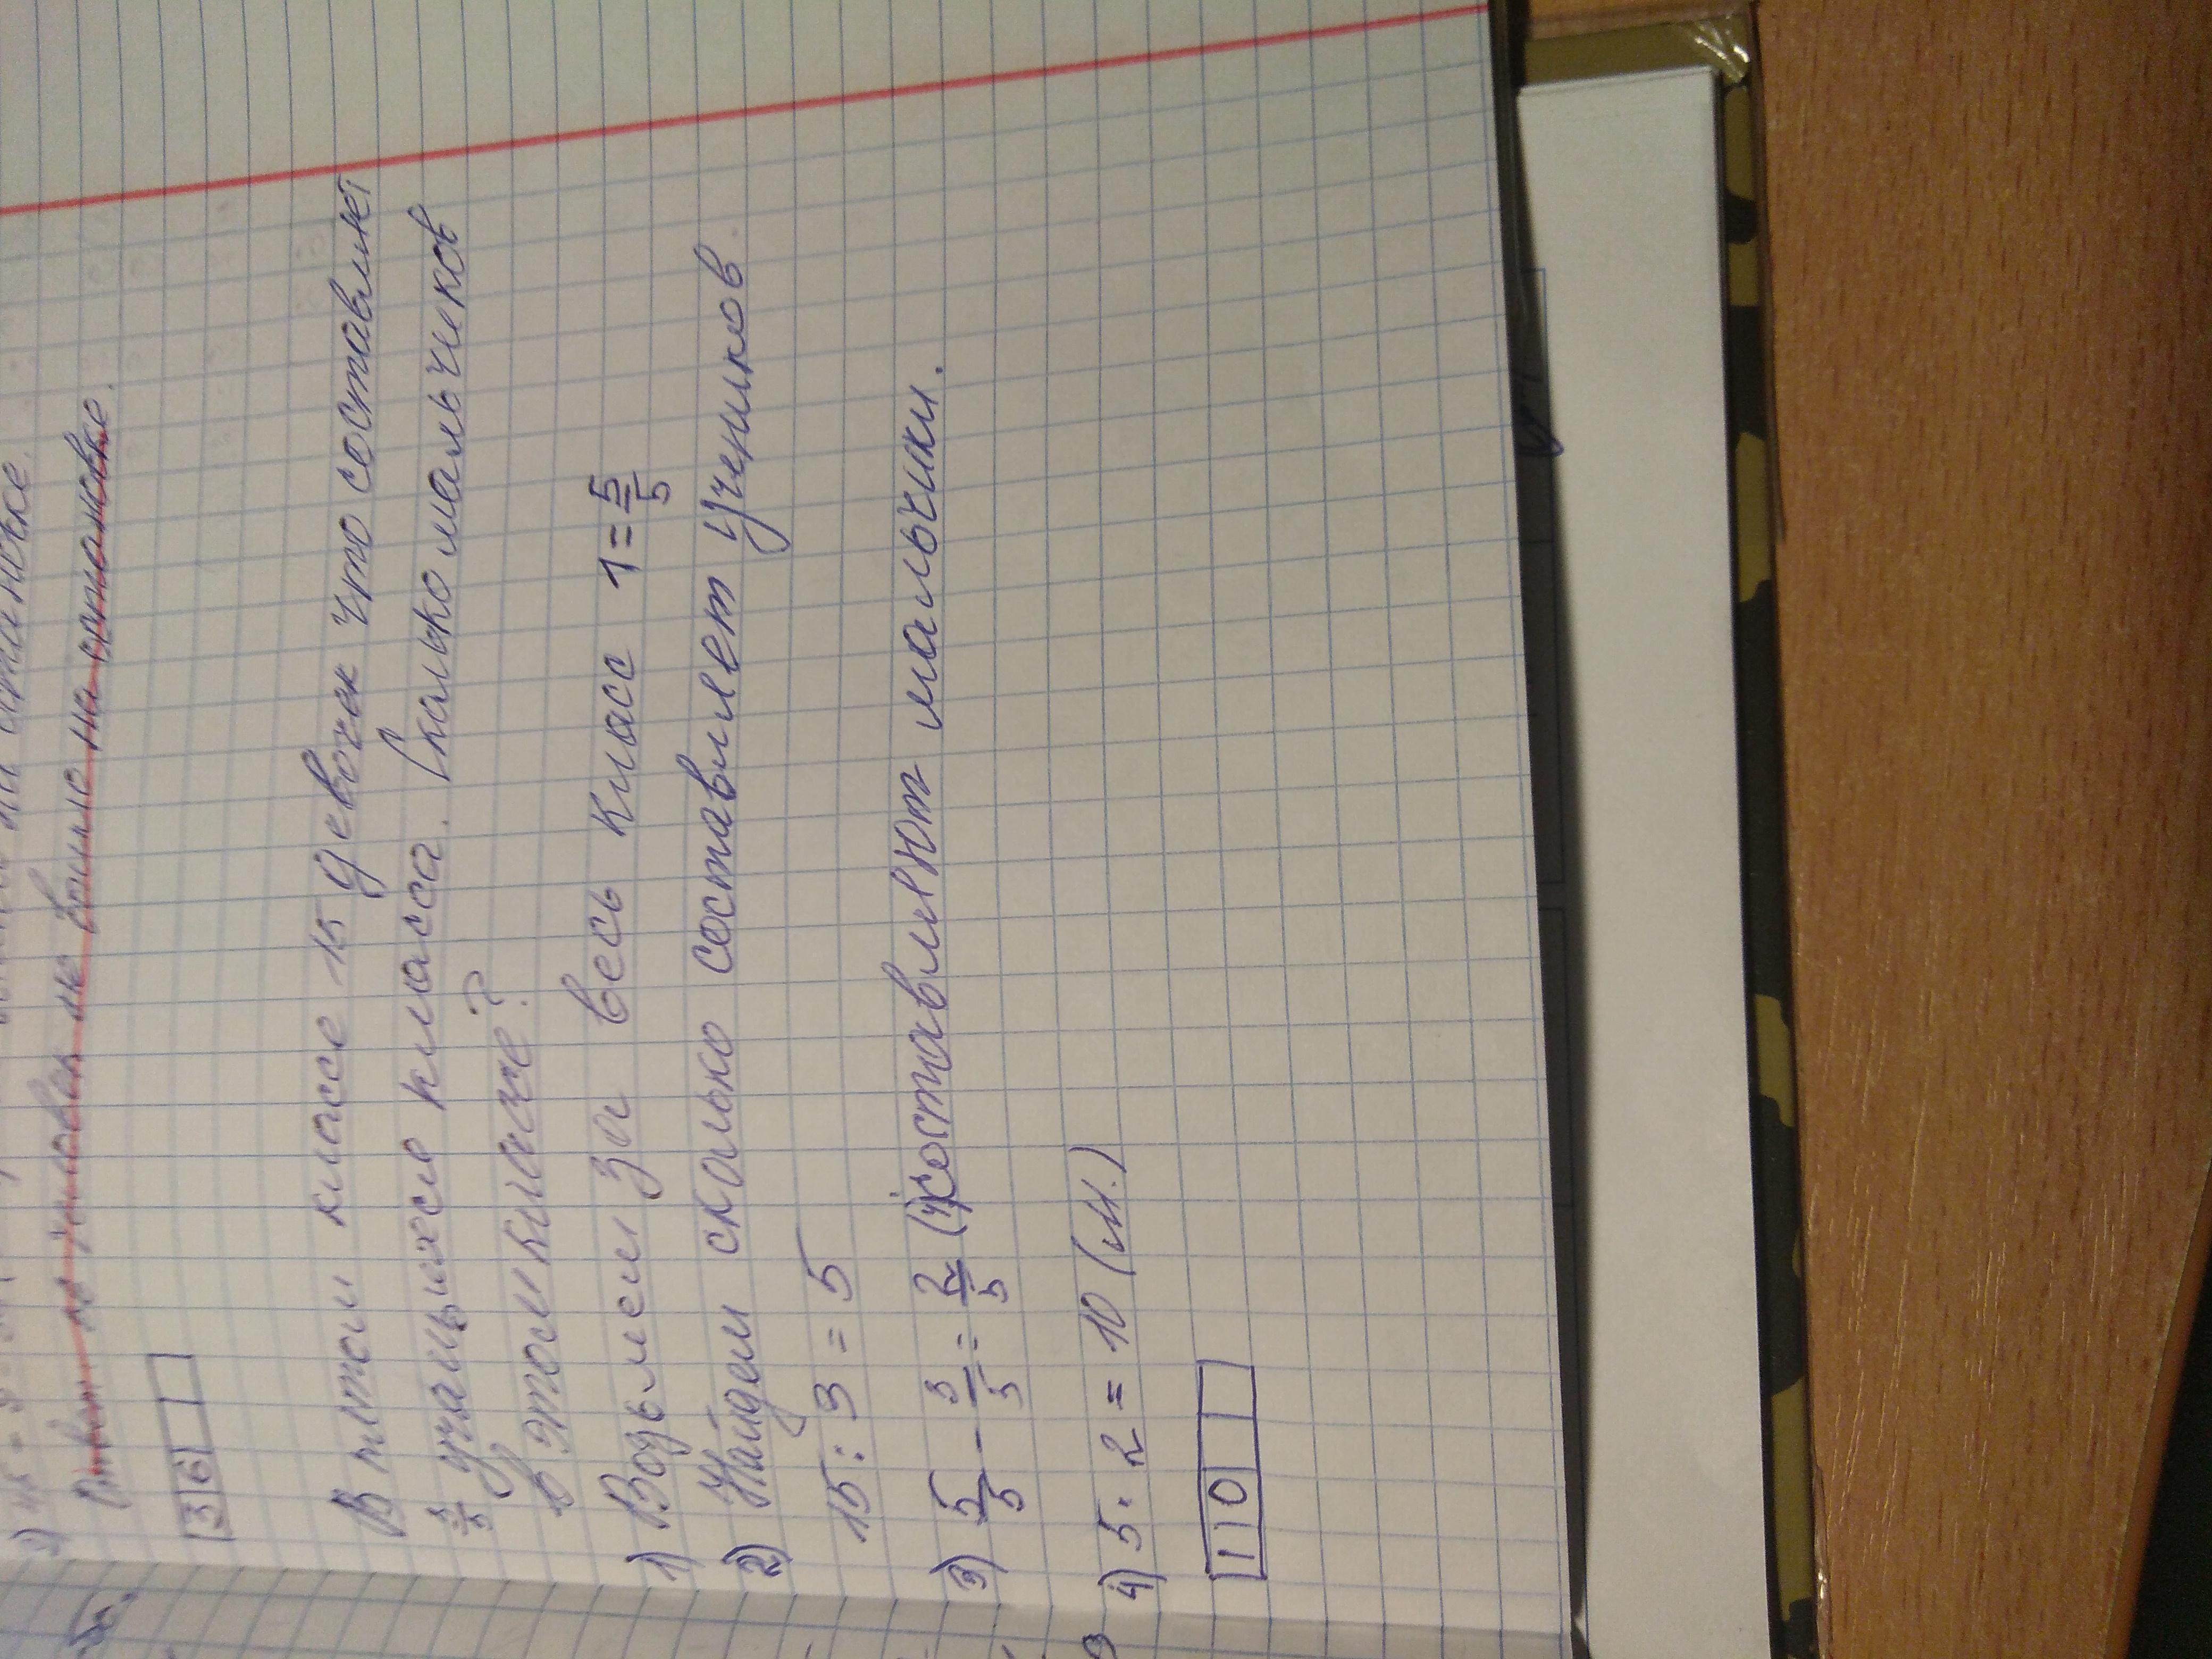 на остановке.
Ответ: 
вышло на остановке.
36
В пятом классе 15 девочек что составляет
3/5 учащихся класса. Сколько мальчиков
в этом классе?
1) Возьмем за весь класс 1 = 5/5
2) Найдем сколько составляет учеников.
15 : 3 = 5
3) 5/5 - 3/5 = 2/5 (ч) составляют мальчики.
4) 5 · 2 = 10 (м.)
10